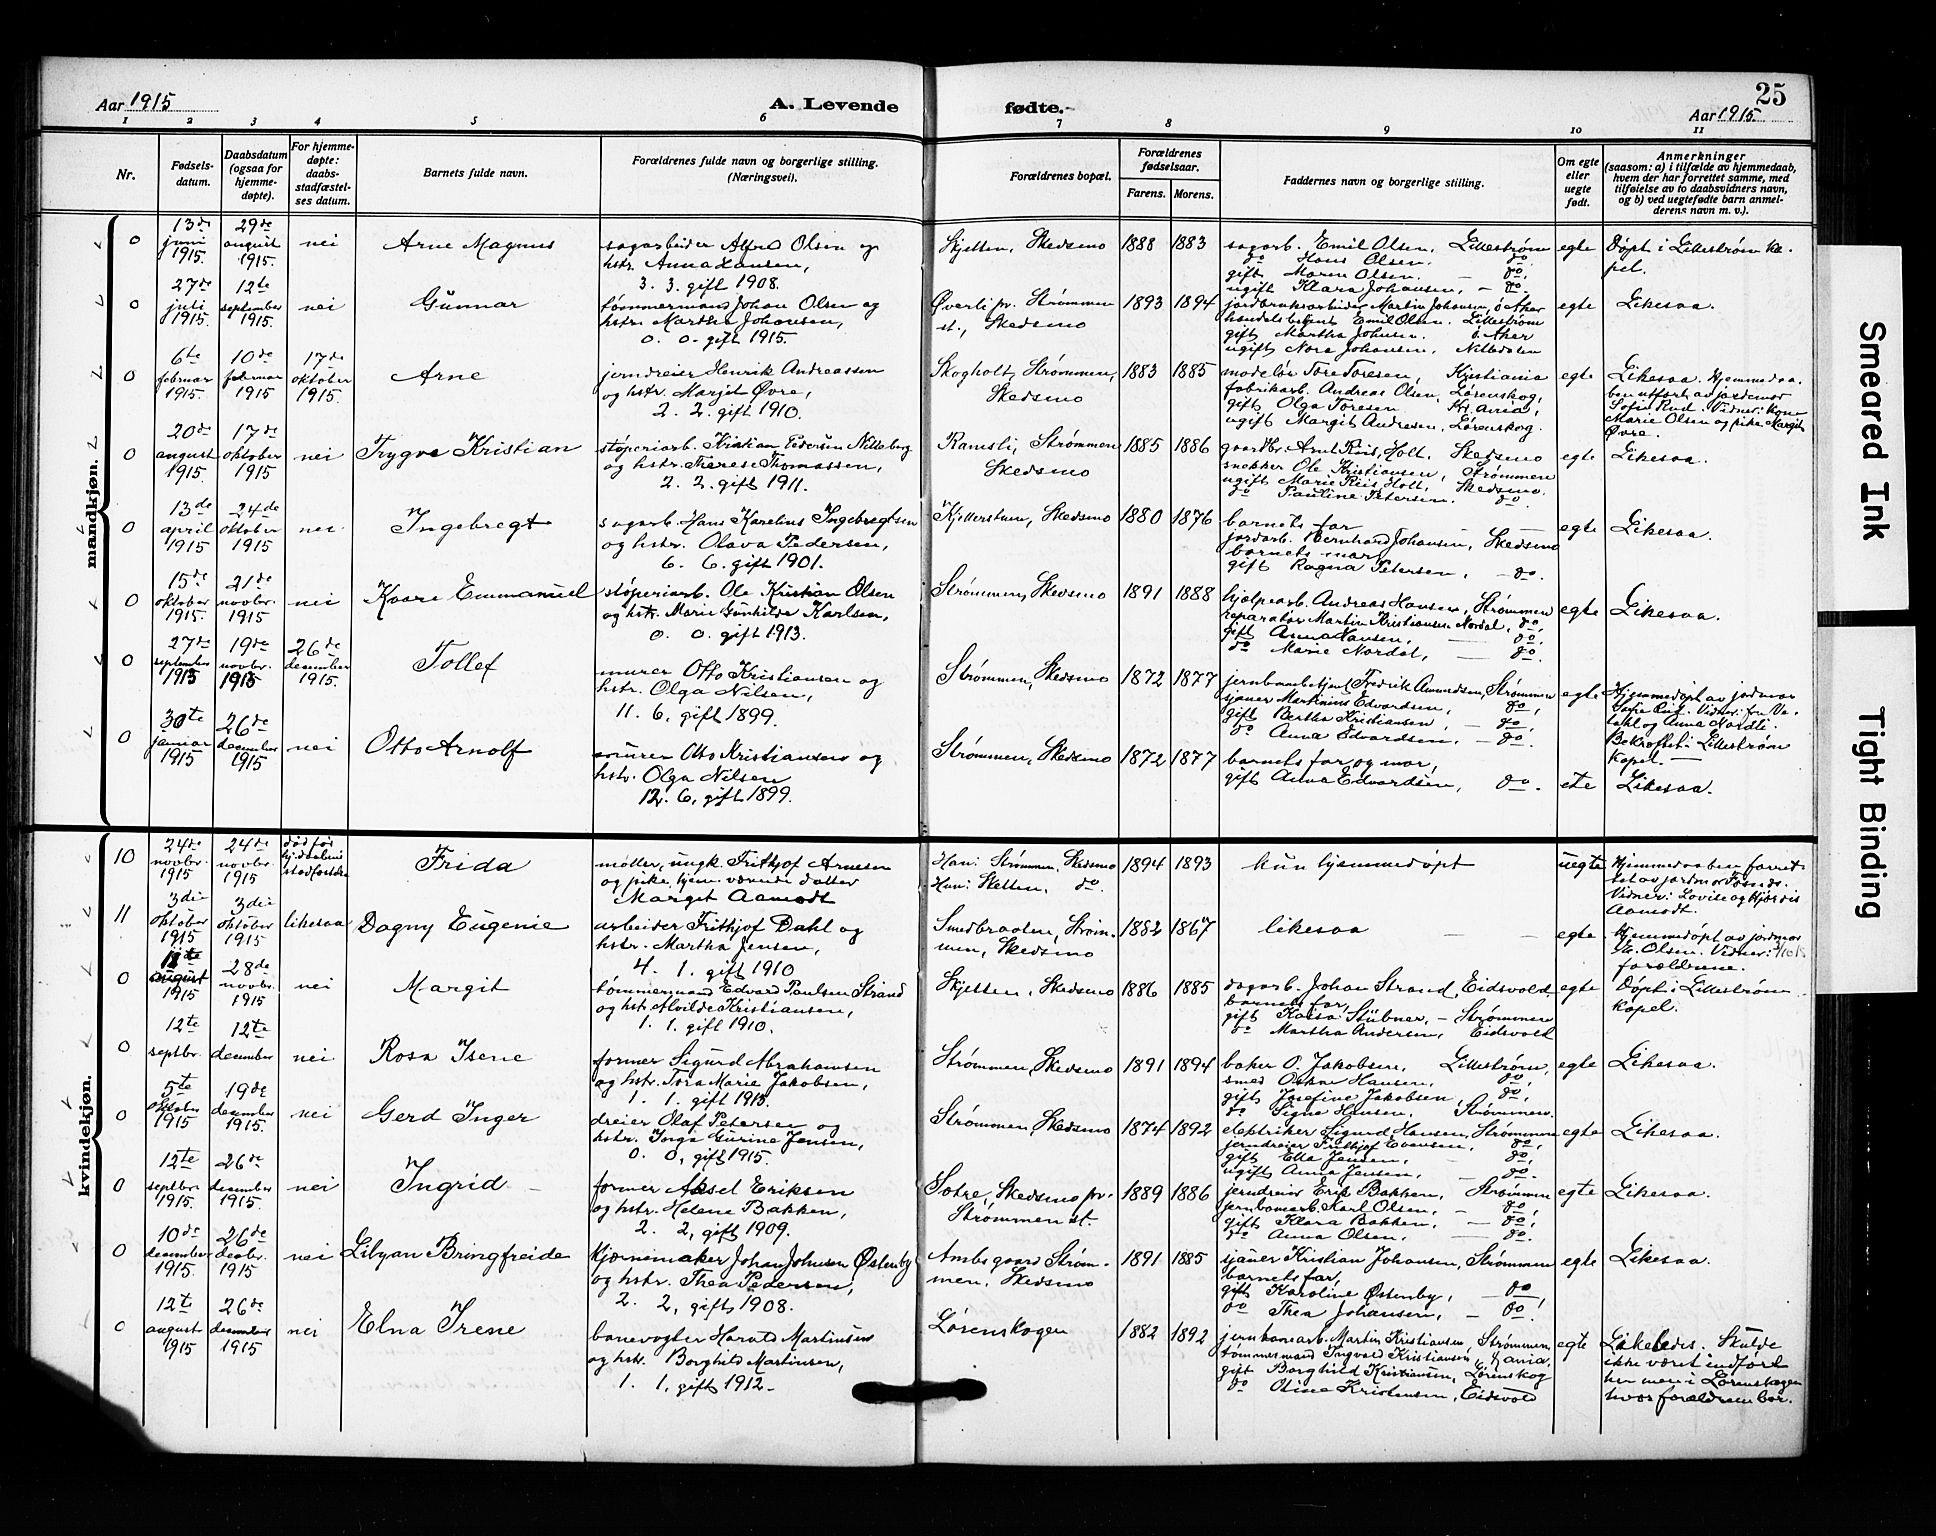 Aar 1915
A. Levende
fødte.
25
Aar 1915.
1 2 3 4 5 6 7 8 9 10 11
Nr.
Fødsels-
datum.
Daabsdatum
(ogsaa for
hjemme-
døpte).
For hjemme-
døpte:
daabs-
stadfæstel-
ses datum.
Barnets fulde navn.
Forældrenes fulde navn og borgerlige stilling.
(Næringsvei).
Forældrenes bopæl.
Forældrenes
fødselsaar.
Farens. Morens.
Faddernes navn og borgerlige stilling.
Om egte
eller
uegte
født.
Anmerkninger
(saasom: a) i tilfælde av hjemmedaab,
hvem der har forrettet samme, med
tilføielse av to daabsvidners navn,
og b) ved uegtefødte barn anmel-
derens navn m. v.).
mandkjøn.
0
13de
juni
1915.
29de
august
1915.
nei
Arne Magnus
sagarbeider Alfred Olsen og
hstr. Anna Hansen,
3. 3. gift 1908.
Skjetten, Skedsmo
1888 1883
sagarb. Emil Olsen, Lillestrøm
do Hans Olsen. do.
gift Maren Olsen. — do.
ugift Klara Johansen, — do.
egte
Døpt i Lillestrøm ka-
pel.
0
27de
juli
1915.
12te
september
1915.
nei
Gunnar
tømmermand Johan Olsen og
hstr. Martha Johansen,
0. 0. gift 1915.
Øverli pr. Strømmen
st., Skedsmo
1893 1894
jordbruksarbeider Martin Johansen, ö. Aker
handelsbetjent Emil Olsen. Lillestrøm
gift Martha Johnsen ö. Aker
ugift Nora Johansen, Nittedalen
egte
Likesaa.
0
6te
februar
1915.
10de
februar
1915
17de
oktober
1915.
Arne
jerndreier Henrik Andreassen
og hstr. Marjit Øvre,
2. 2. gift 1910.
Skogholt, Strømmen,
Skedsmo
1883 1885
modelør Tore Toresen, Kristiania
fabrikarb. Andreas Olsen, Lørenskog,
gift Olga Toresen Kr.ania,
ugift Margit Andresen, Lørenskog.
egte
Likesaa. Hjemmedaa-
ben utført av jordmor
Sofie Rud. Vidner: kone
Marie Olsen og pike Margit
Øvre.
0
20de
august
1915.
17de
oktober
1915
nei
Trygve Kristian
støperiarb. Kristian Pedersen Nitteberg
og hstr. Therese Thomassen,
2. 2. gift 1911.
Ramsli, Strømmen
Skedsmo
1885 1886
gaardbr. Arnt Riis, Holt. Skedsmo
snekker Ole Kristiansen, Strømmen
ugift Marie Riis Holt. Skedsmo.
do Pauline Petersen. do.
egte
Likesaa.
0
13de
april
1915
24de
oktober
1915
nei
Ingebregt
sagarb. Hans Karelius Ingebregtsen
og hstr. Olava Pedersen,
6. 6. gift 1901.
Kjellerstuen, Skedsmo
1880 1876
barnets far
jordarb. Bernhard Johansen, Skedsmo
barnets mor
gift Ragna Petersen, — do.
egte
Likesaa.
0
15de
oktober
1915.
21de
novbr.
1915.
nei
Kaare Emmanuel
støperiarb. Ole Kristian Olsen
og hstr. Marie Gunhilde Karlsen,
0. 0. gift 1913.
Strømmen, Skedsmo
1891 1888
hjælpearb. Andreas Hansen, Strømmen
reparatør Martin Kristiansen Nordal, do,
gift Anna Hansen, — do,
do Marie Nordal, — do.
egte
Likesaa.
0
27de
september
1915
19de
novbr.
1915
26de
desember
1915.
Tollef
murer Otto Kristiansen og
hstr. Olga Nilsen,
11. 6, gift 1899.
Strømmen, Skedsmo
1872 1877
jernbanebetjent Fredrik Amundsen, Strømmen
sjauer Martinius Edvardsen, do,
gift Bertha Kristiansen — do,
do Anna Edvardsen, — do.
egte
Hjemmedøpt av jordmor
Bekræftet i Lillestrøm
kapel. —
0
30te
januar
1915
26de
desember
1915
nei
Otto Arnolf
murer Otto Kristiansen og
hstr. Olga Nilsen
12. 6, gift 1899.
Strømmen, Skedsmo
1872 1877
barnets far og mor,
gift Anna Edvardsen, do.
ete
Likesaa.
kvindekjøn.
10
24de
novbr.
1915
24de
novbr.
1915
død før
Frida
møller, ungk. Frithjof Arnesen
og pike, hjem. værende datter
Marget Aamodt
Han: Strømmen, Skedsmo
Hun: Sketten, do.
1894 1893
kun hjemmedøpt
uegte
Hjemmedaaben forret-
tet av jordmor
Vidner: Lovise og Hjørdis
Aamodt.
11
3die
oktober
1915
3die
oktober
1915
likesaa
Dagny Eugenie
arbeider Frithjof Dahl og
hstr. Martha Jensen,
4. 1. gift 1910
Smedbraaten, Strøm-
men, Skedsmo
1882 1867
likesaa — —
egte.
Hjemmedøpt av jordmor
E. Olsen. Vidner:
forældrene.
0
august
1915
28de
novbr.
1915
nei
Margit
tømmermand Edvard Paulsen Strand
og hstr. Alvilde Kristiansen,
1. 1. gift 1910.
Skjetten, Skedsmo
1886 1885
dagarb. Johan Strand, Eidsvold.
barnets far,
gift Kaisa Stübner, — Strømmen
do Martha Andersen, Eidsvold
egte
Døpt i Lillestrøm
kapel.
0
12te
septbr.
12te
desember
nei
Rosa Isene
former Sigurd Abrahamsen
og hstr. Tora Marie Jakobsen,
1. 1. gift 1913.
Strømmen, Skedsmo
1891 1894
baker O. Jakobsen, Lillestrøm,
smed Oskar Hansen, do,
gift Josefine Jakobsen, do,
do Signe Hansen, Strømmen.
egte
Likesaa.
0
5te
oktober
1915
19de
desember
1915.
nei
Gerd Inger
dreier Olaf Petersen og
hstr. Inga Gurine Jensen,
0. 0, gift 1915.
Strømmen, Skedsmo
1874 1892
elektriker Sigurd Hansen, Strømmen
jerndreier Frithjof Evensen do,
gift Ella Jensen, — do,
ugift Anna Jensen, — do.
egte
Likesaa.
0
12te
septbr.
1915
26de
desember
1915.
nei
Ingrid —
former Aksel Eriksen
og hstr. Helene Bakken,
2. 2, gift 1909.
Sotre, Skedsmo pr.
Strømmen st.
1889 1886
jerndreier Erik Bakken, Strømmen
jernbanearb. Karl Olsen, — do,
gift Klara Bakken, — do,
do Anna Olsen. — do.
egte
Likesaa.
0
10de
desember
1915.
26de
desbr.
1915
nei
Libyan Bringfreide
kjærnemaker Johan Johnsen Østenby
og hstr. Thea Pedersen,
2. 2, gift 1908.
Ambsgaard Strøm-
men, Skedsmo
1891 1885
sjauer Kristian Johansen, Strømmen
barnets far,
gift Karoline Østenby, do,
do Thea Johansen, — do.
egte
Likesaa.
0
12te
august
1915
26de
desember
1915
nei
Elna Irene
banevogter Harald Martinsen
og hstr. Borghild Martinsen,
1. 1, gift 1912.
Lørenskogen
1882 1892
jernbanearb. Martin Kristiansen, Strømmen,
tømmermand Ingvald Kristiansen, Kr.ania,
gift Borghild Kristiansen, Lørenskog
do Oline Kristensen, Eidsvold
egte
Likeledes. Skulde
ikke været indført
her men i Lørenskogen
hvor forældrene bor.
Smeared Ink
Tight Binding